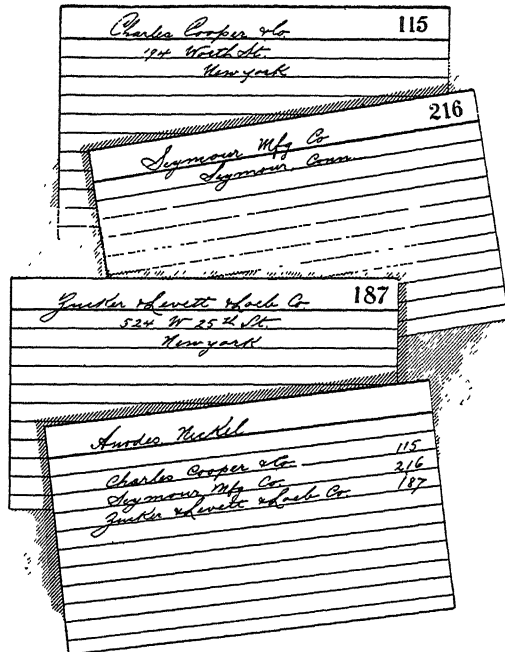 115
Charles Cooper & Co
194 Worth St.
New York
216
Seymour Mfg Co
Seymour, Conn.
187
Zucker & Levett & Loeb Co
524 W 25th St.
New York
Anodes Nickel
Charles Cooper & Co 115
Seymour Mfg Co 216
Zucker & Levett & Loeb Co. 187